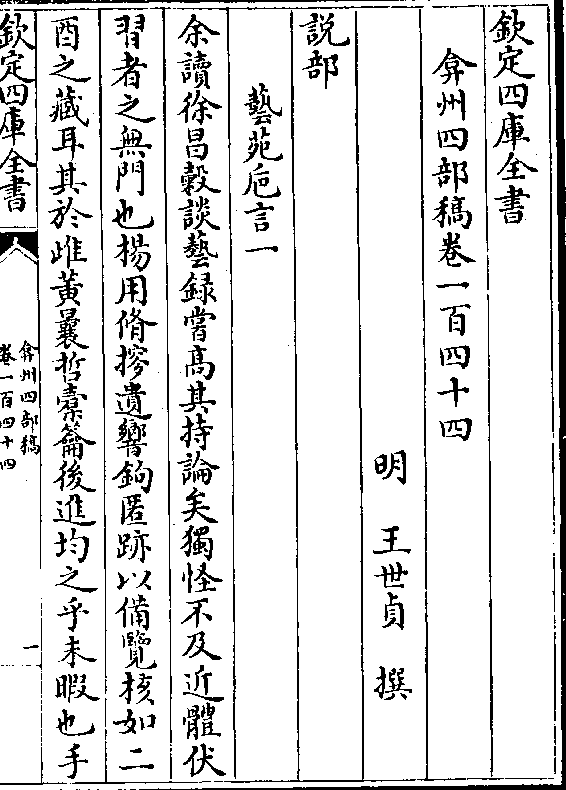 欽定四庫全書
弇州四部稿卷一百四十四
明 王世貞 撰
説部
藝苑巵言一
余讀徐昌糓談藝録嘗髙其持論矣獨怪不及近體伏
習者之無門也楊用脩搜遺響鉤匿跡以備覽核如二
酉之藏耳其於雌黄曩哲橐籥後進均之乎未暇也手
欽定四庫全書
弇州四部稿
卷一百四十四
一